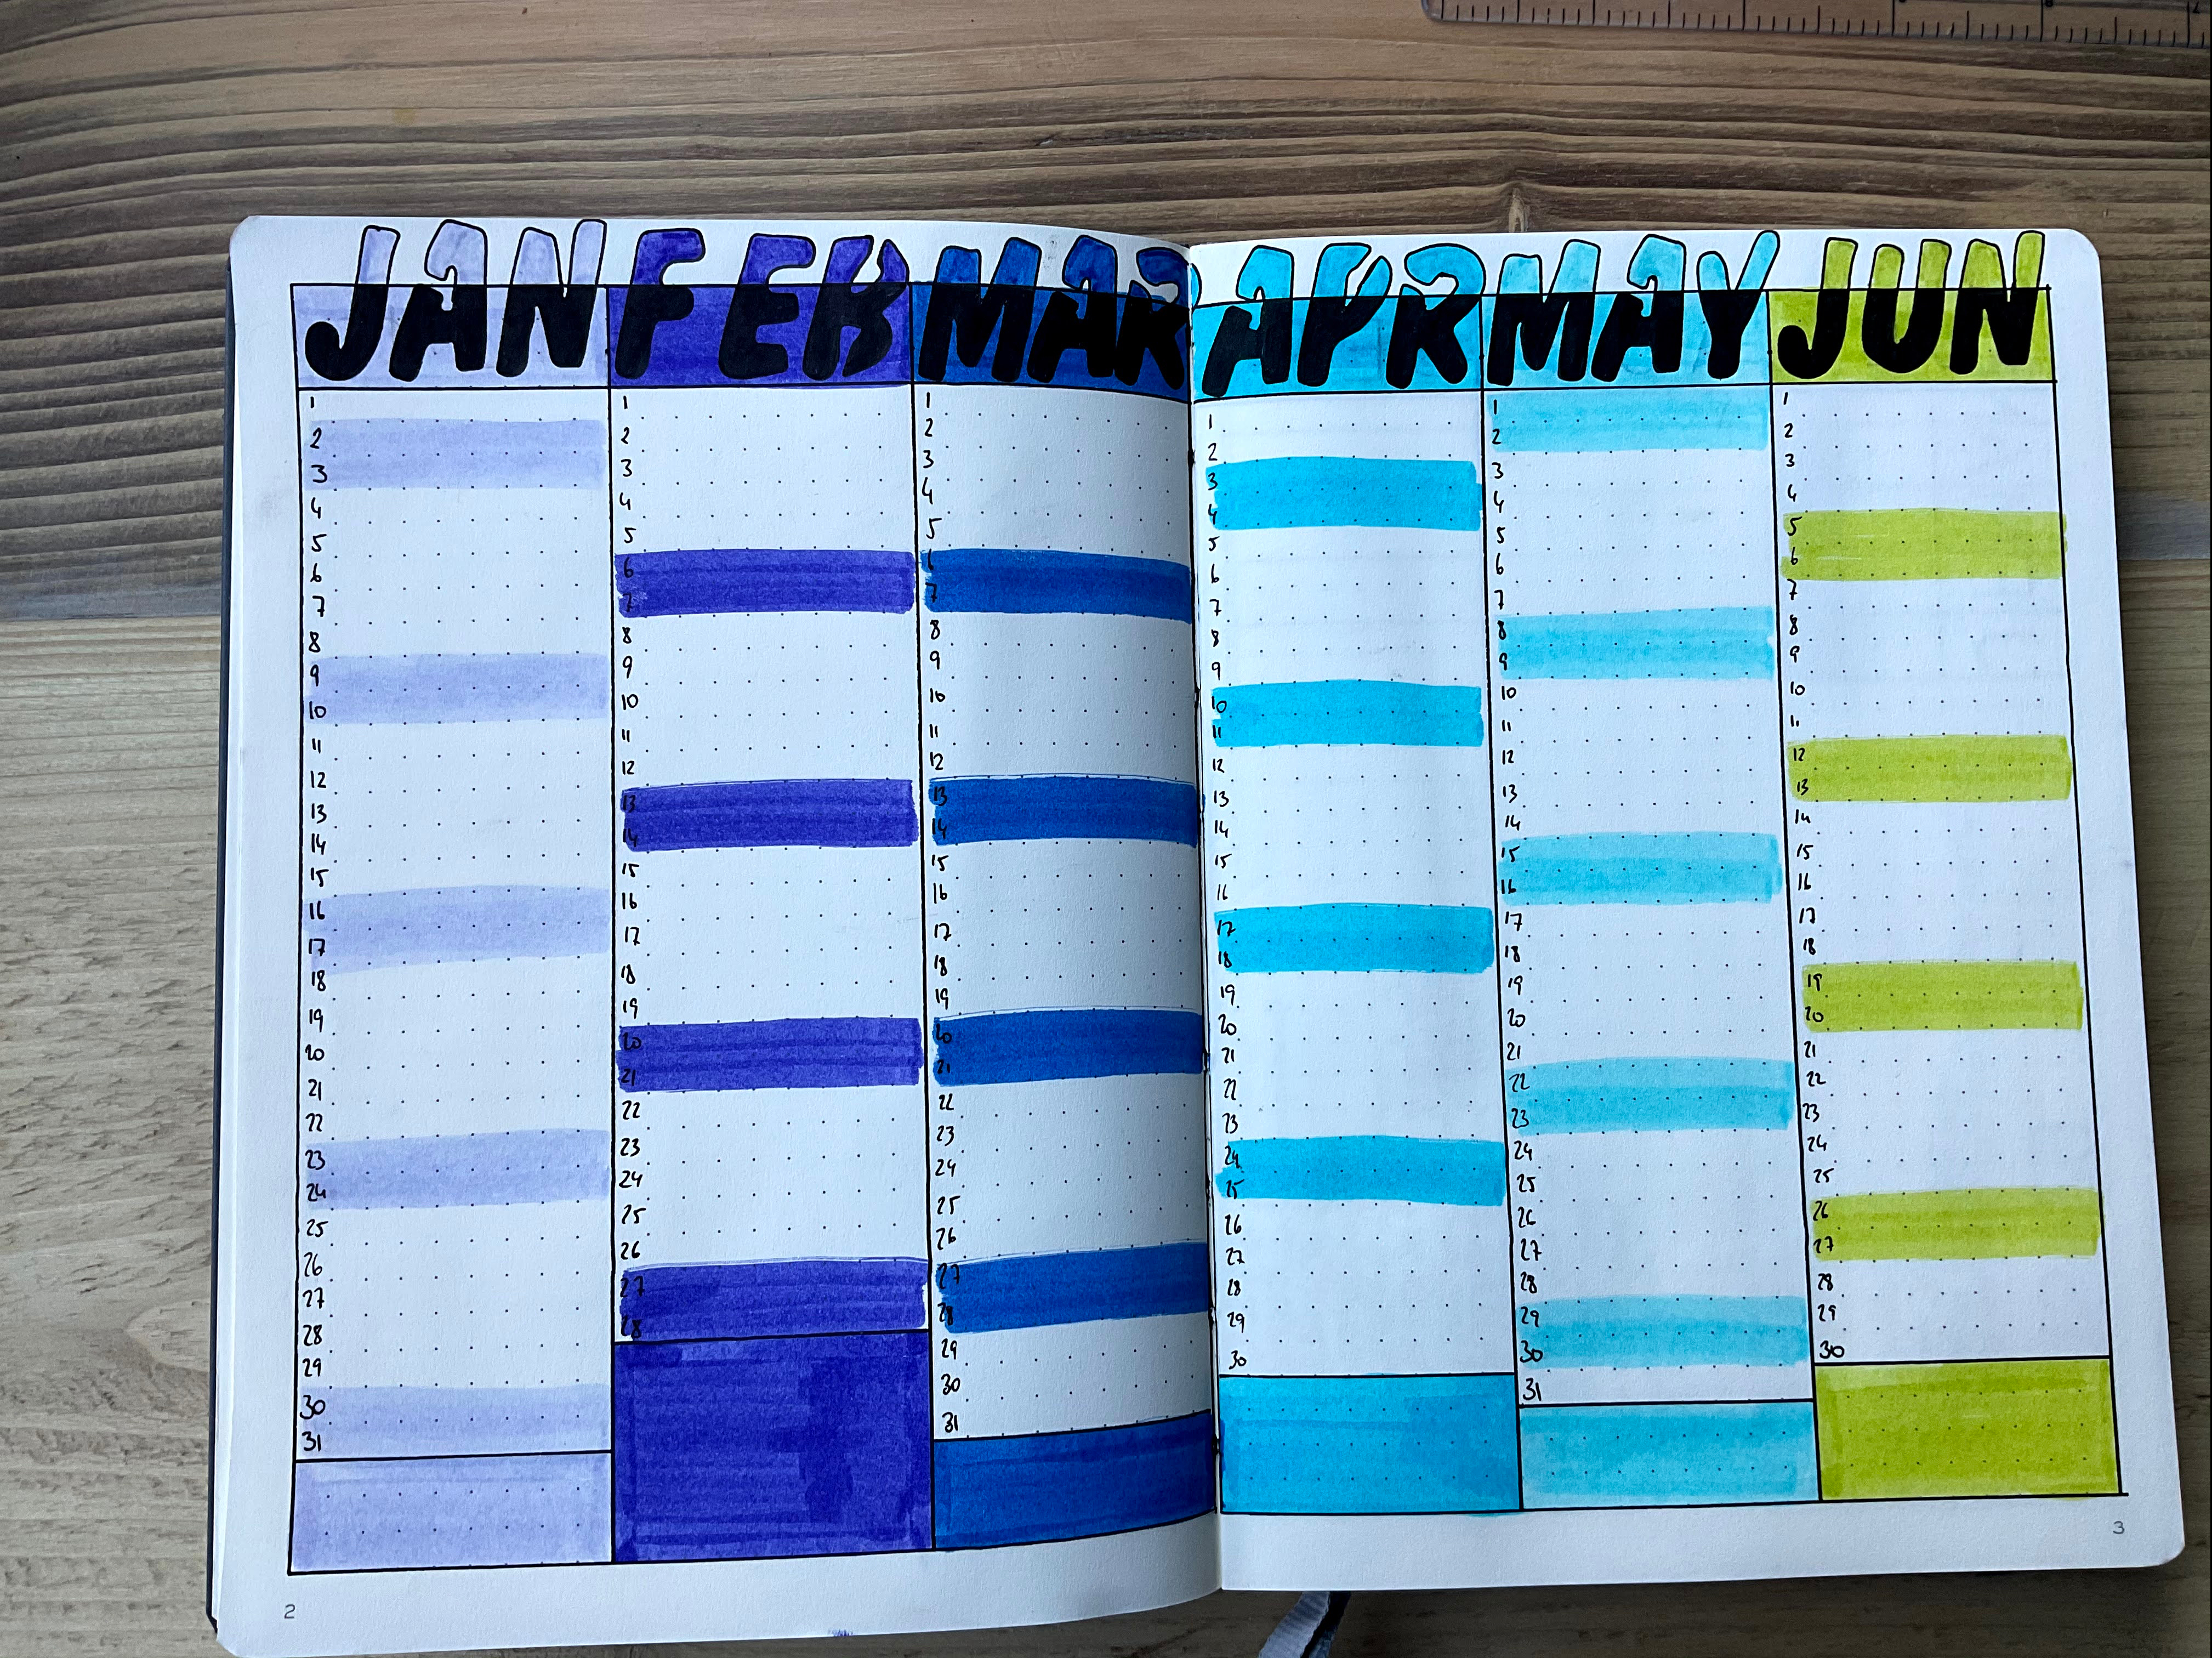 JAN FEB MAR APR MAY JUN
1 1 1 1 1 1
2 2 2 2 2 2
3 3 3 3 3 3
4 4 4 4 4 4
5 5 5 5 5 5
6 6 6 6 6 6
7 7 7 7 7 7
8 8 8 8 8 8
9 9 9 9 9 9
10 10 10 10 10 10
11 11 11 11 11 11
12 12 12 12 12 12
13 13 13 13 13 13
14 14 14 14 14 14
15 15 15 15 15 15
16 16 16 16 16 16
17 17 17 17 17 17
18 18 18 18 18 18
19 19 19 19 19 19
20 20 20 20 20 20
21 21 21 21 21 21
22 22 22 22 22 22
23 23 23 23 23 23
24 24 24 24 24 24
25 25 25 25 25 25
26 26 26 26 26 26
27 27 27 27 27 27
28 28 28 28 28 28
29 29 29 29 29
30 30 30 30 30
31 31 31
2 3